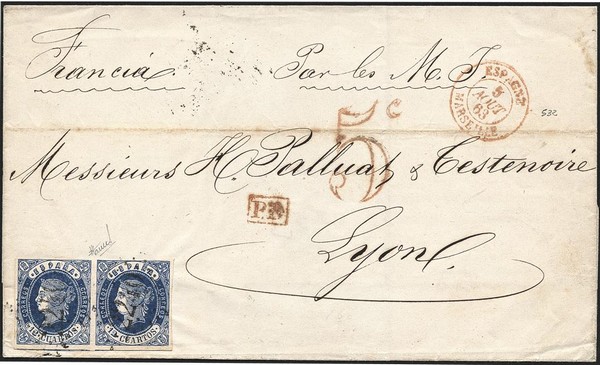 Francia Par les M. I.
ESPAGNE
5
AOUT
63
MARSEILLE
532
5c
Messieurs H. Palluat & Testenoire
P.D.
Lyon
ESPAÑA ESPAÑA
CORREOS CORREOS
12 CUARTOS 12 CUARTOS